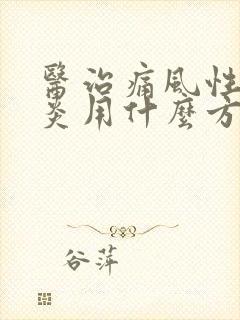 醫治痛風性
炎用什麼方
谷萍